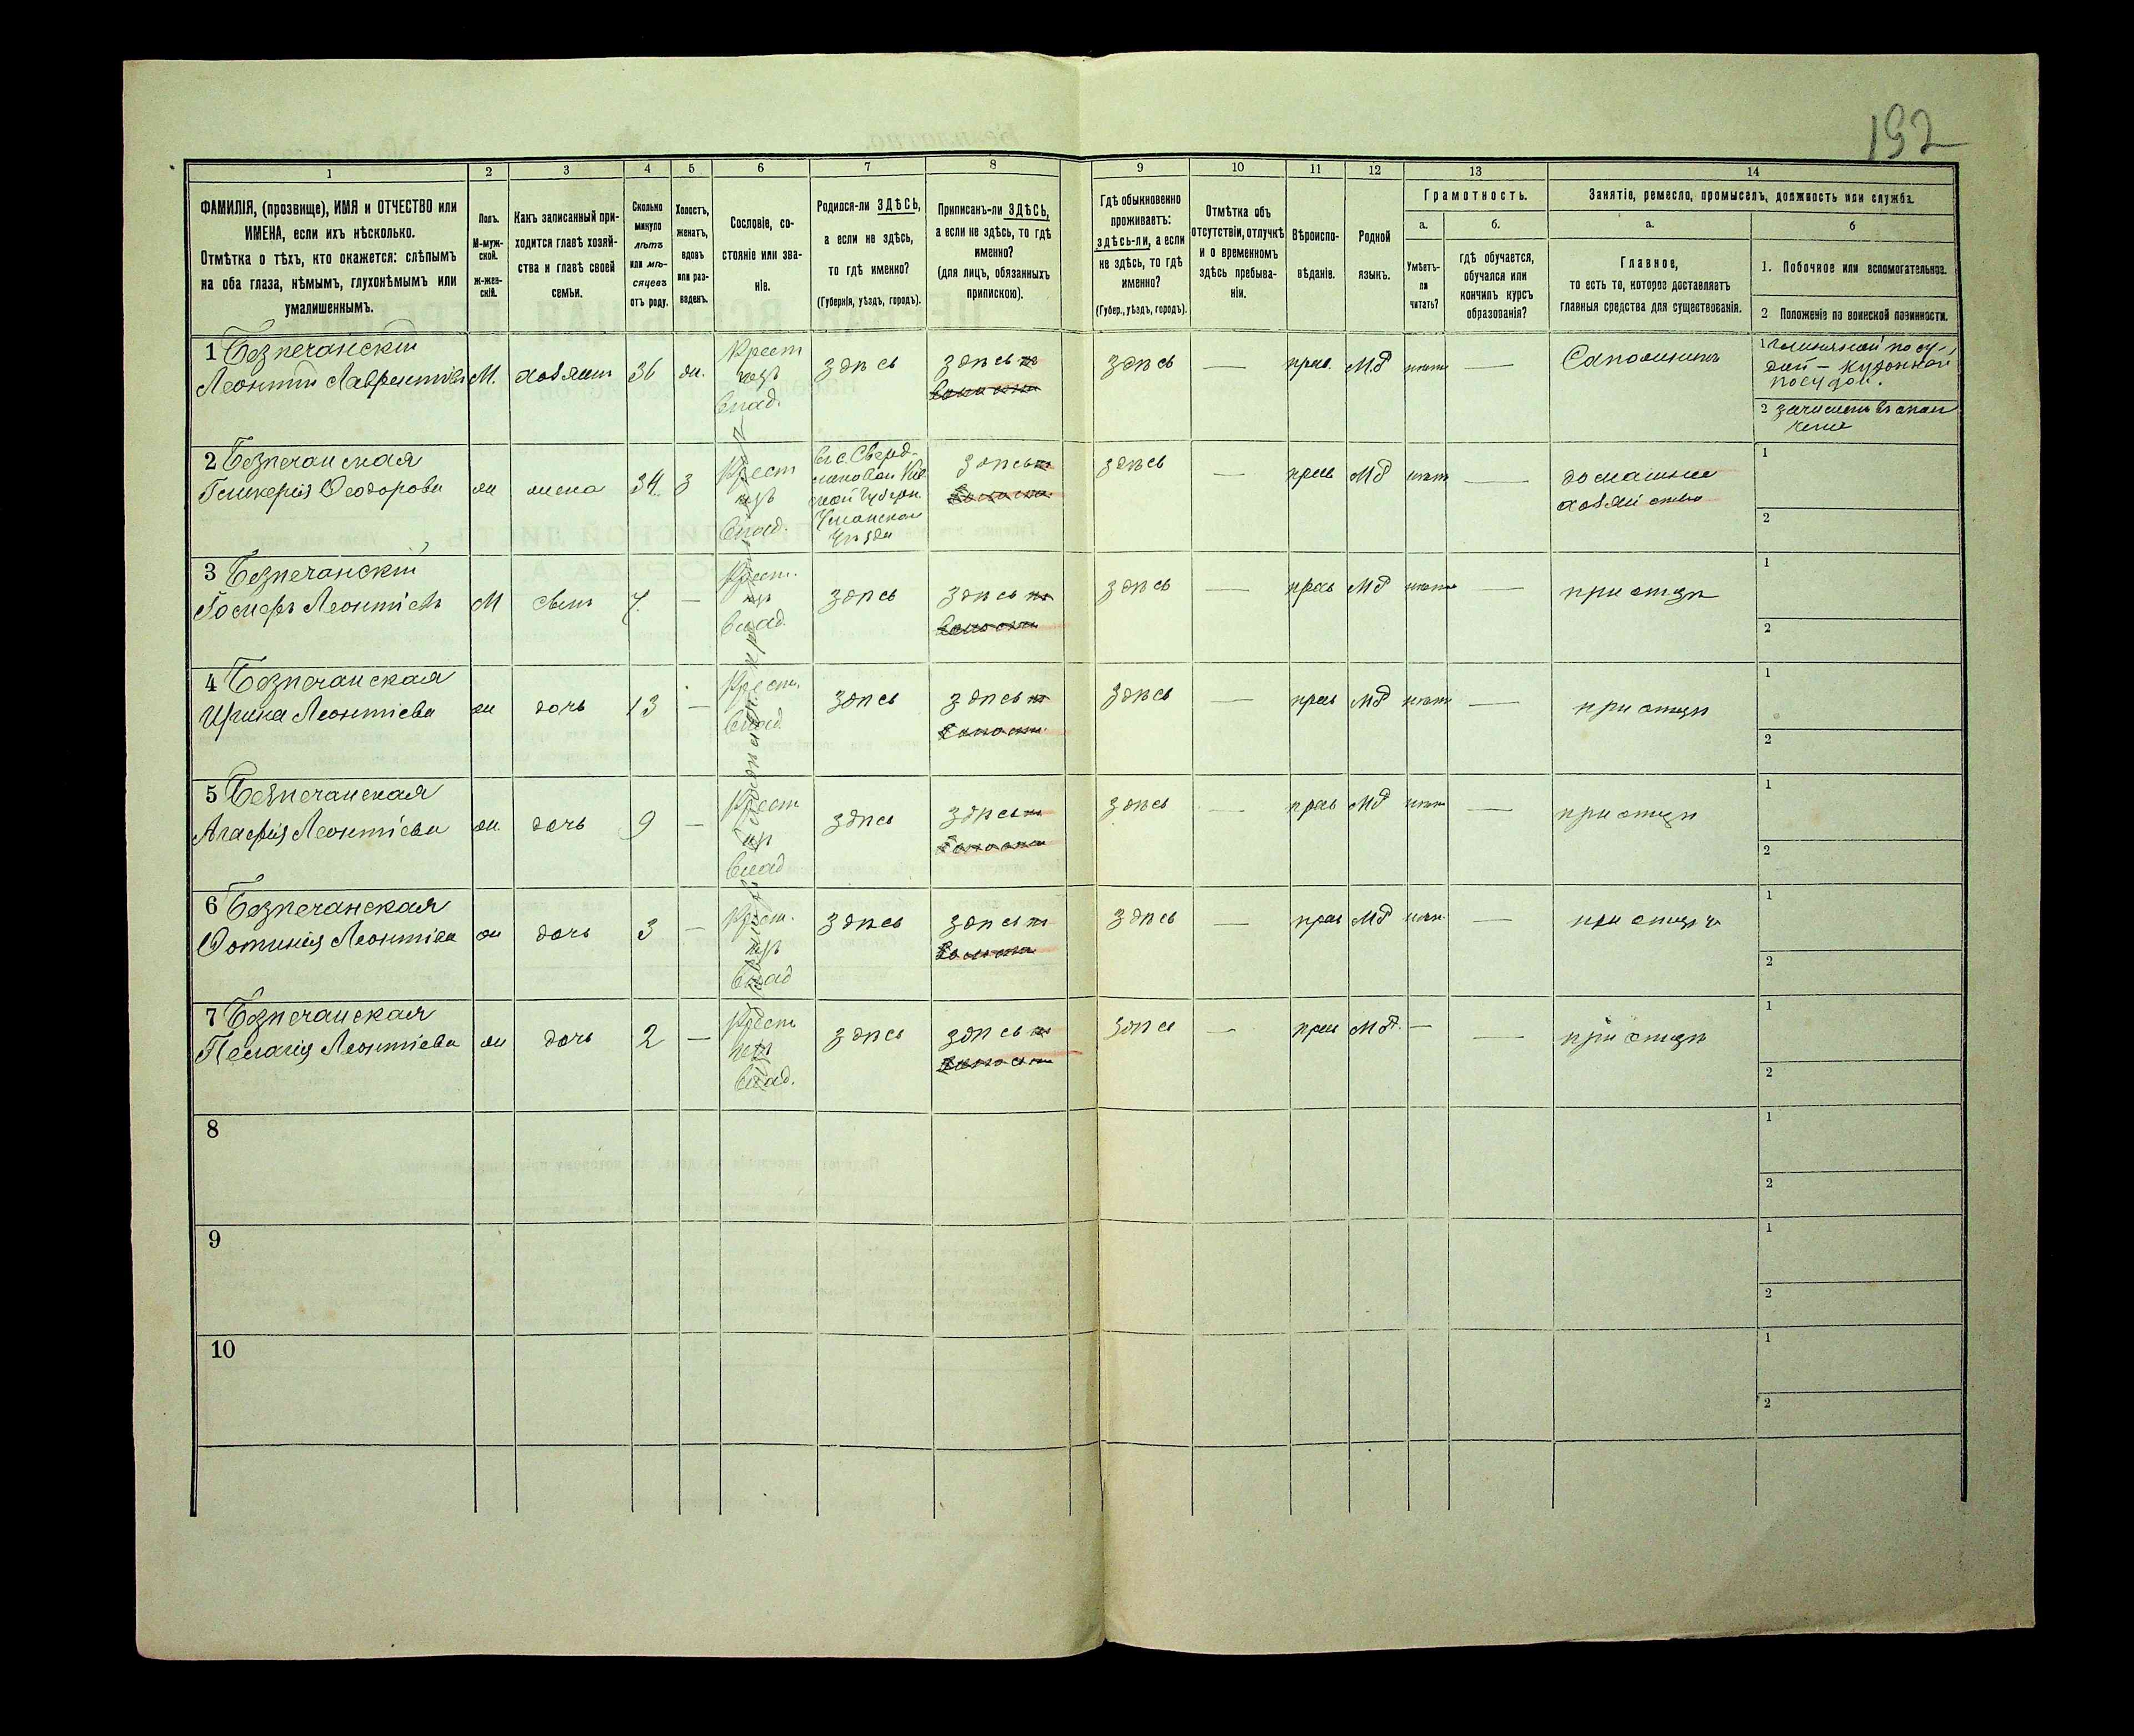 192
1 2 3 4 5 6 7 8 9 10 11 12 13 14
ФАМИЛІЯ, (прозвище), ИМЯ и ОТЧЕСТВО или
ИМЕНА, если ихъ нѣсколько.
Отмѣтка о тѣхъ, кто окажется: слѣпымъ
на оба глаза, нѣмымъ, глухонѣмымъ или
умалишеннымъ.
Полъ.
М-муж-
ской.
Ж-жен-
скій.
Какъ записанный при-
ходится главѣ хозяй-
ства и главѣ своей
семьи.
Сколько
минуло
лѣтъ
или мѣ-
сяцевъ
отъ роду.
Холостъ,
женатъ,
вдовъ
или раз-
веденъ.
Сословіе, со-
стояніе или зва-
ніе.
Родился-ли ЗДѢСЬ,
а если не здѣсь,
то гдѣ именно?
(Губернія, уѣздъ, городъ).
Приписанъ-ли ЗДѢСЬ,
а если не здѣсь, то гдѣ
именно?
(для лицъ, обязанныхъ
припискою).
Гдѣ обыкновенно
проживаетъ:
здѣсь-ли, а если
не здѣсь, то гдѣ
именно?
(Губер., уѣздъ, городъ).
Отмѣтка объ
отсутствіи, отлучкѣ
и о временномъ
здѣсь пребыва-
ніи.
Вѣроиспо-
вѣданіе.
Родной
языкъ.
Грамотность.
а.
Умѣетъ-
ли
читать?
б.
гдѣ обучается,
обучался или
кончилъ курсъ
образованія?
Занятіе, ремесло, промыселъ, должность или служба.
а.
Главное,
то есть то, которое доставляетъ
главныя средства для существованія.
б
1. Побочное или вспомогательное.
2 Положеніе по воинской повинности.
1 Безпечанскій
Леонтій Лаврентіевъ М. хозяин 36 ж. Крест
влад. здѣсь здѣсь здѣсь — прав. М.Р нѣтъ —
посудой.
2
2 Безпечанская
Гликерія Ѳеодорова ж жена 34 з Крест
влад. здѣсь здѣсь — прав МР нѣтъ — домашнее
хозяйство
1
2
3 Безпечанскій
Леонтіевъ М сынъ 7 — Крест.
влад. здѣсь здѣсь здѣсь — прав МР нѣтъ — при отцѣ
1
2
4 Безпечанская
Ирина Леонтіева ж дочь 13 — Крест.
влад здѣсь здѣсь здѣсь — прав МР нѣтъ — при отцѣ
1
2
5 Безпечанская
Агафія Леонтіева ж. дочь 9 — Крест
влад здѣсь здѣсь здѣсь — прав МР нѣтъ — при отцѣ
1
2
6 Безпечанская
Ѳотинія Леонтіева ж дочь 3 — Крест.
влад здѣсь здѣсь здѣсь — прав МР нѣтъ — при отцѣ
1
2
7 Безпечанская
Пелагія Леонтіева ж дочь 2 — Крест
влад. здѣсь здѣсь здѣсь — прав МР. — — при отцѣ
1
2
8
1
2
9
1
2
10
1
2